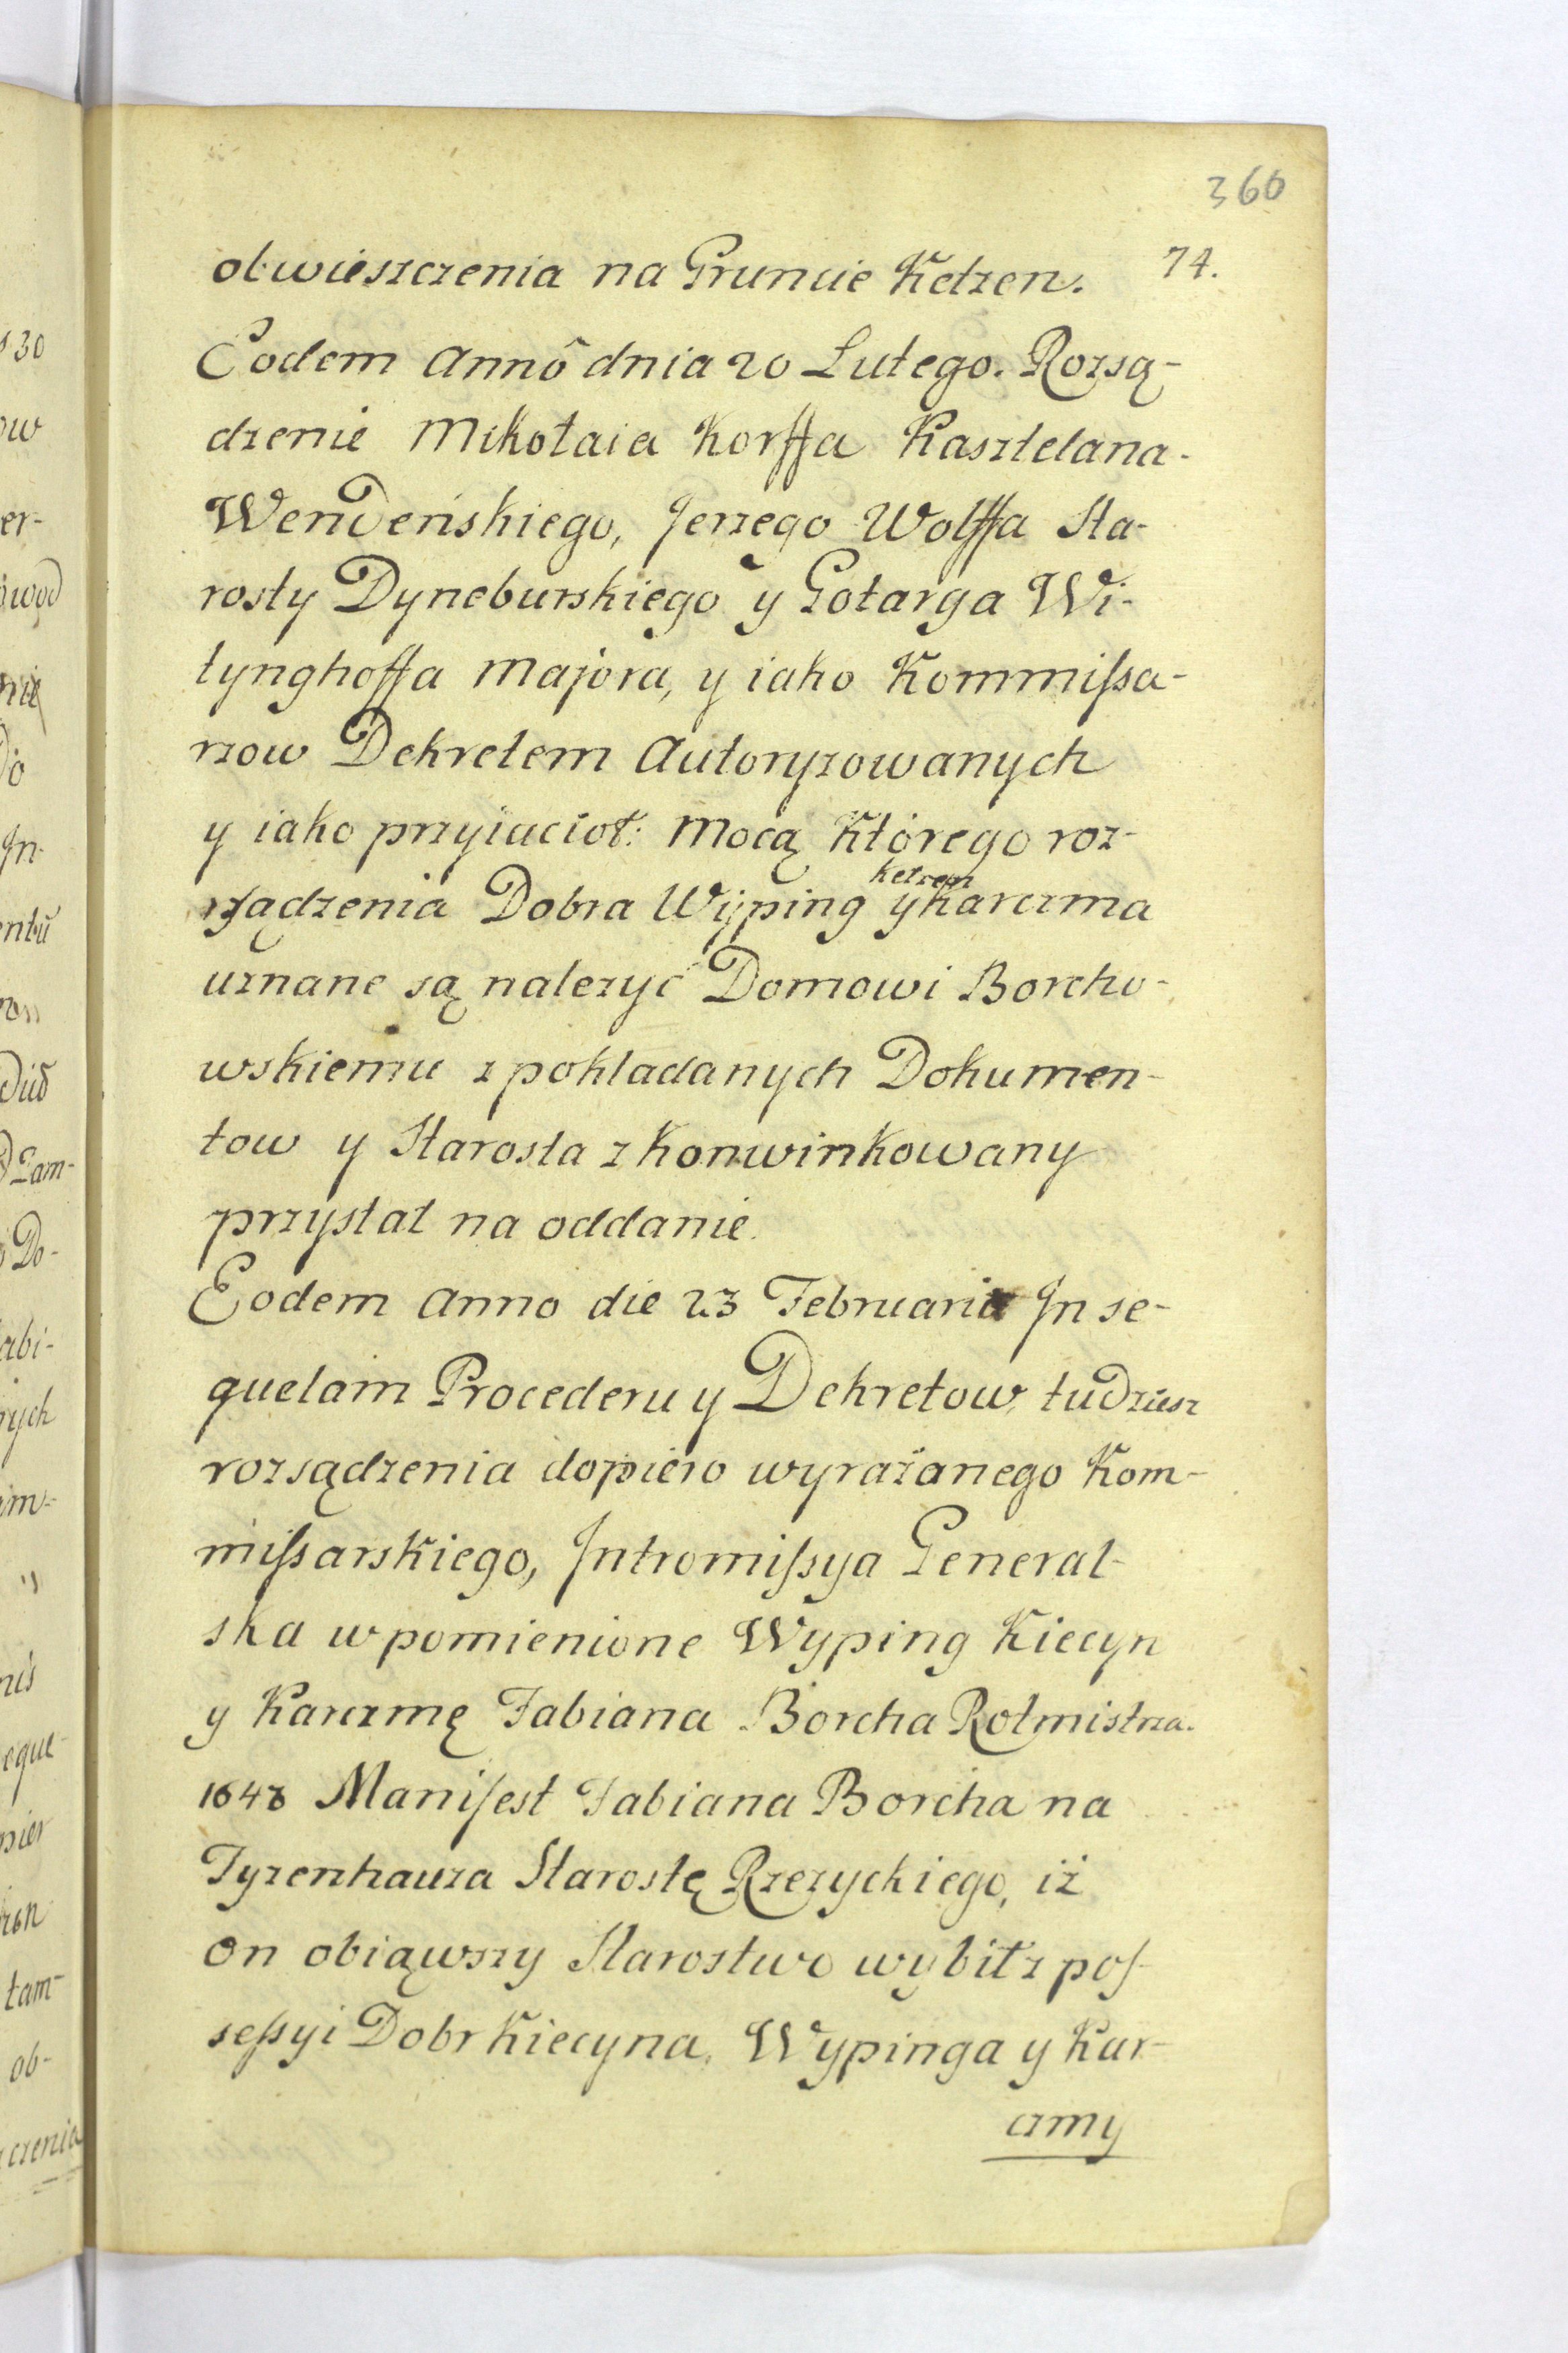 360
74.
obwieszczenia na Gruncie Ketzen.
Eodem Annô dnia 20 Lutego. Rozsą-
dzenie Mikołaia Korffa Kasztelana
Wendeńskiego, Jerzego Wolffa Sta-
rosty Dyneburskiego y Gotarga Wi-
tynghoffa Majora, y iako Kommiſsa-
rzow Dekretem Autoryzowanych
y iako przyiacioł: Mocą Którego roz-
ketzen
sądzenia Dobra Wyping y Karczma
uznane są należyć Domowi Borcho-
wskiemu z pokladanych Dokumen-
tow y Starosta zkonwinkowany
przystał na oddanie.
Eodem Anno die 23 Februarii In se-
quelam Procederu y Dekretow, tudziesz
rozsądzenia dopiero wyrażanego Kom-
miſsarskiego, Intromiſsya General-
ska w pomienione Wyping Kiecyn
y Karczmę Fabiana Borcha Rotmistrza.
1648 Manifest Fabiana Borcha na
Tyzenhauza Starostę Rzezyckiego, iż
on obiąwszy Starostwo wybił z poſ-
seſsyi Dobr Kiecyna, Wypinga y Kar-
czmy